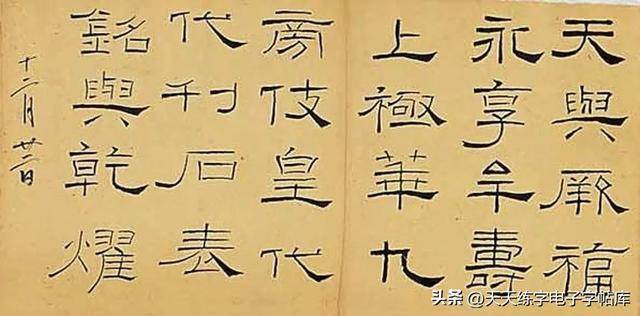 天與厥福
永享牟壽
上極華九
旁伎皇代
代刊石表
銘與乾燿
十二月廿二日
头条 @天天练字电子字帖库